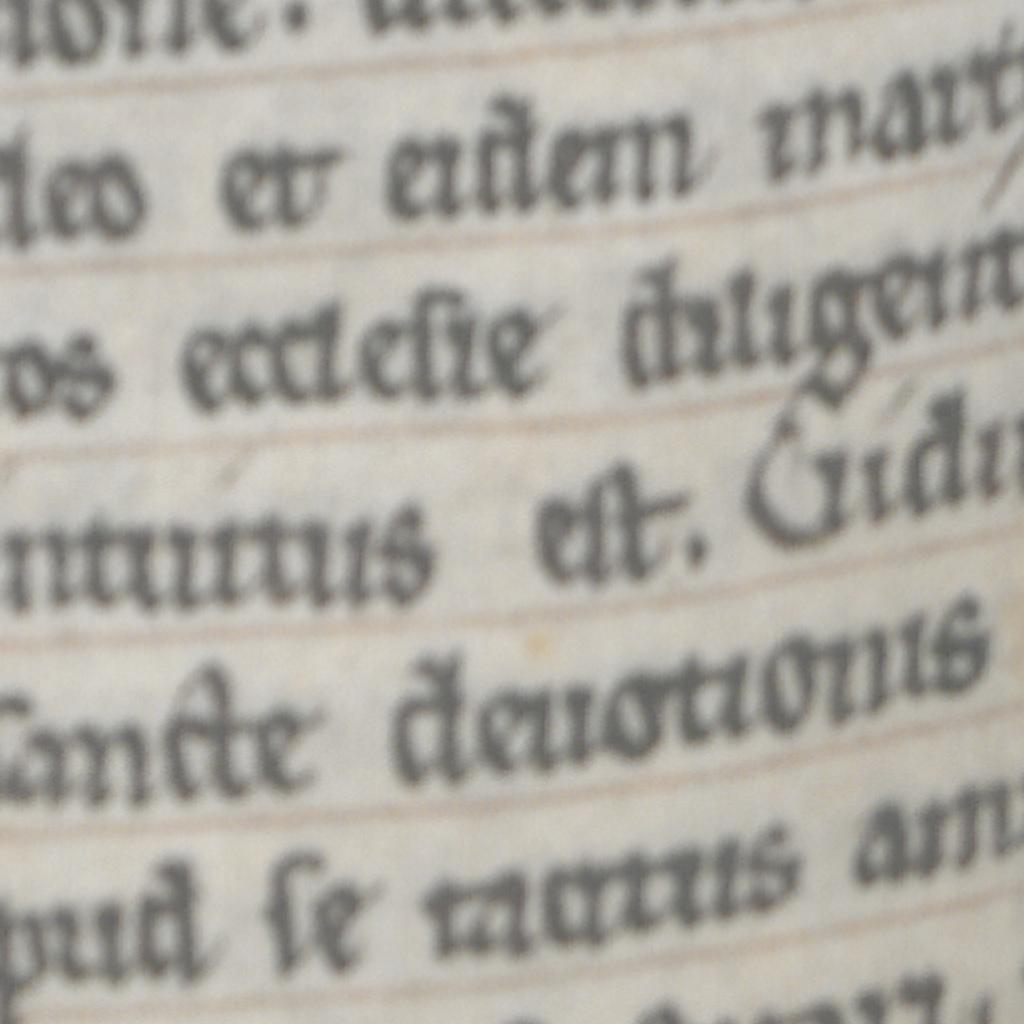 deo et eidem mart
os ecclesie diligent
ntutus est. Gidu
sancte deuotionis
pud se tacitus am